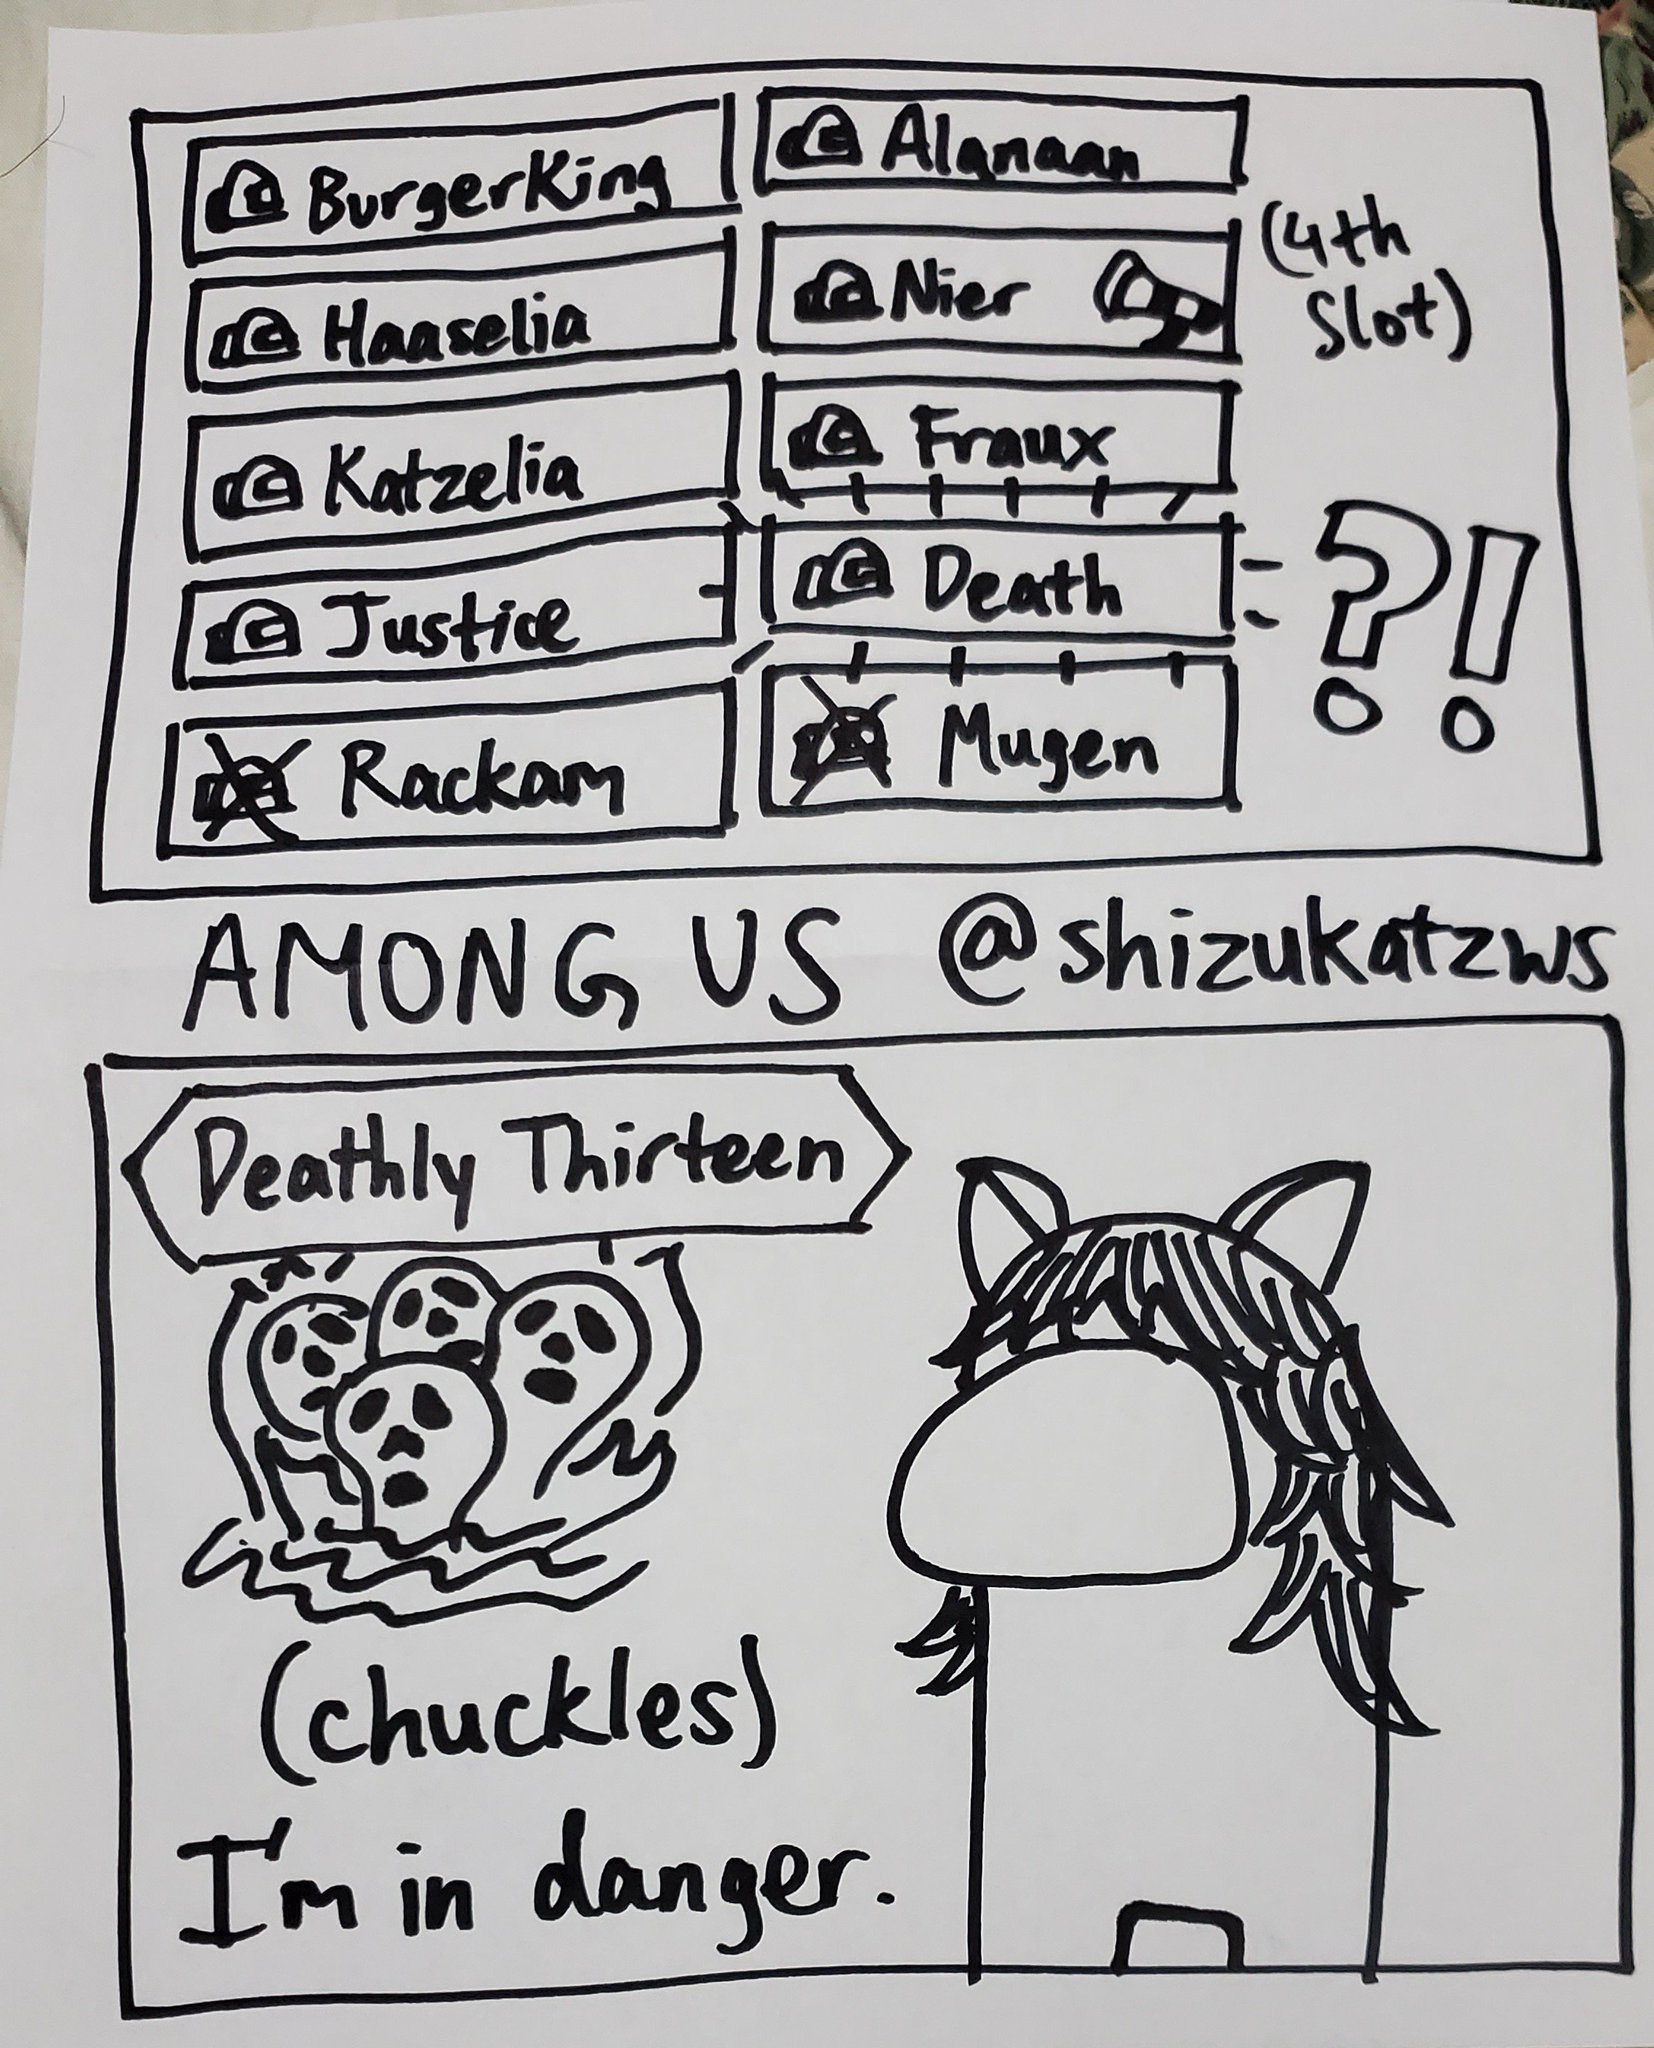 BurgerKing
Alanaan
Haaselia
Nier
(4th
Slot)
Katzelia
Fraux
Justice
Death
?!
Rackam
Mugen
AMONG US @shizukatzws
Deathly Thirteen
(chuckles)
I'm in danger.